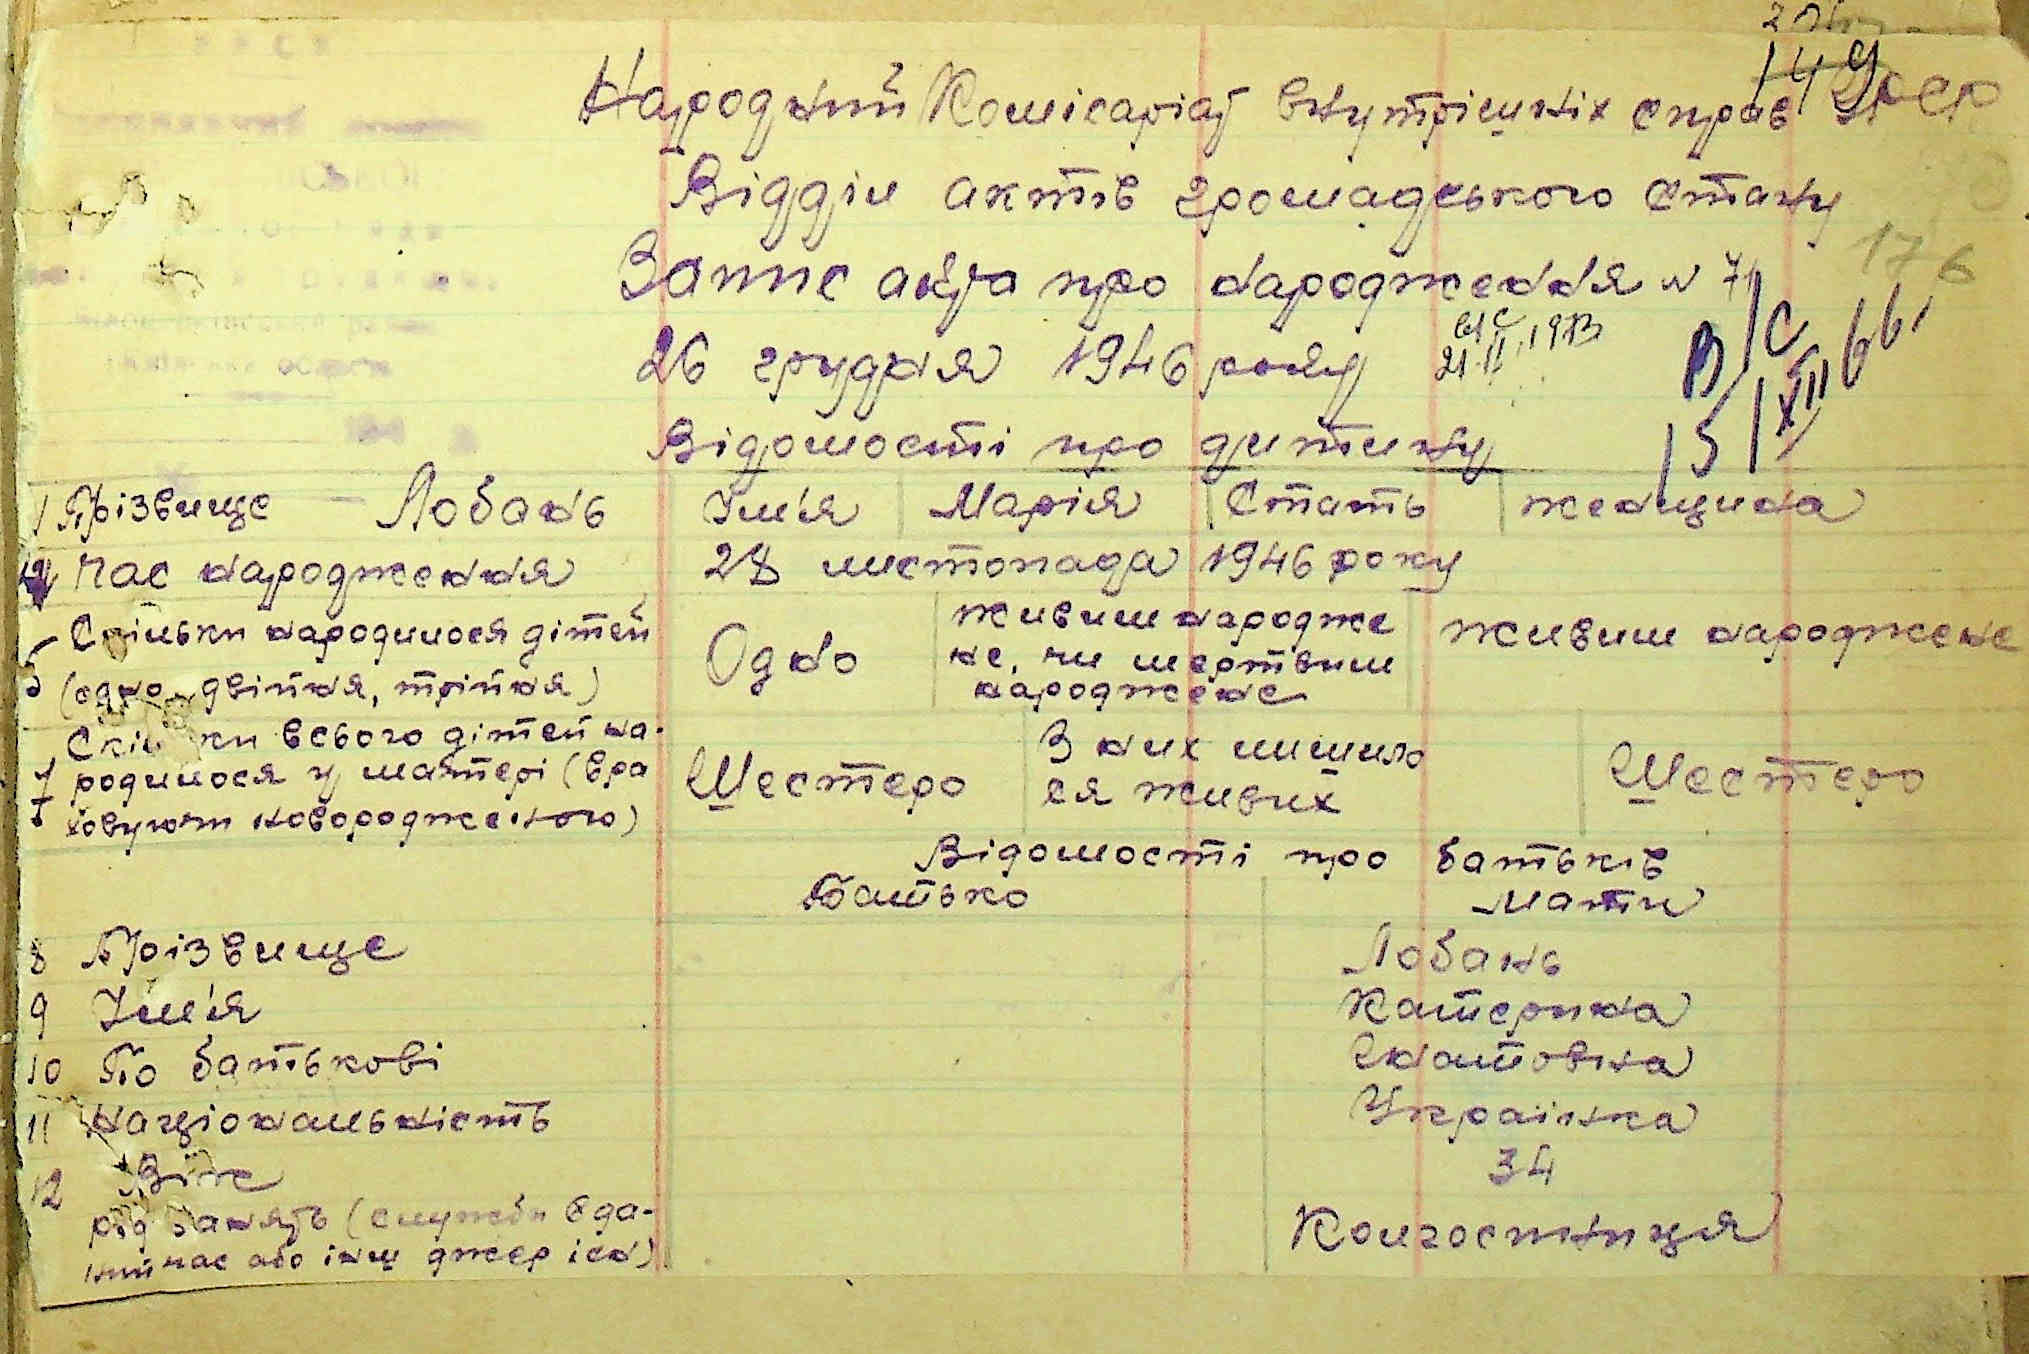 149
Народний Комісаріат внутрішніх справ УРСР
Відділ актів громадського стану
176
Запис акта про народження N 71
26 грудня 1946 року
в/с 21.II.1973
В/С 15/XII 66.
Відомості про дитину
1 Прізвище – Лобань Ім'я Марія Стать женщина
Час народження 28 листопада 1946 року
5 Скільки народилося дітей (одно, двійня, трійня) Одно
живим народже
не, чи мертвим
народжене
живим народжене
7 Скільки всього дітей на-
родилося у матері (вра
ховуючи новородженого)
Шестеро
З них лишило
ся живих
Шестеро
Відомості про батьків
Батько Мати
8 Прізвище Лобань
9 Ім'я Катерина
10 По батькові Гнатовна
11 Національність Українка
12 Вік 34
рід занять (служби в да-
ний час або інш джер існ) Колгоспниця